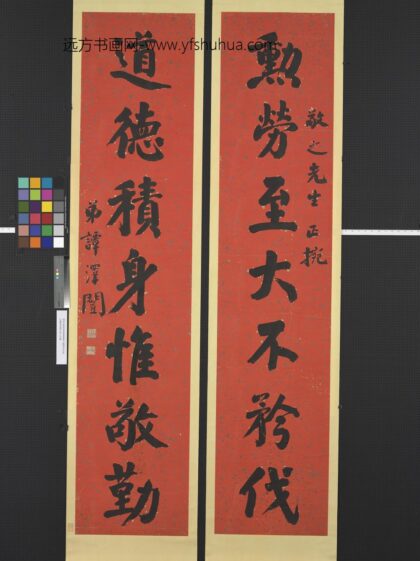 远方书画网-www.yfshuhua.com
敬之先生正捥
勳勞至大不矜伐
道德積身惟敬勤
弟譚澤闓